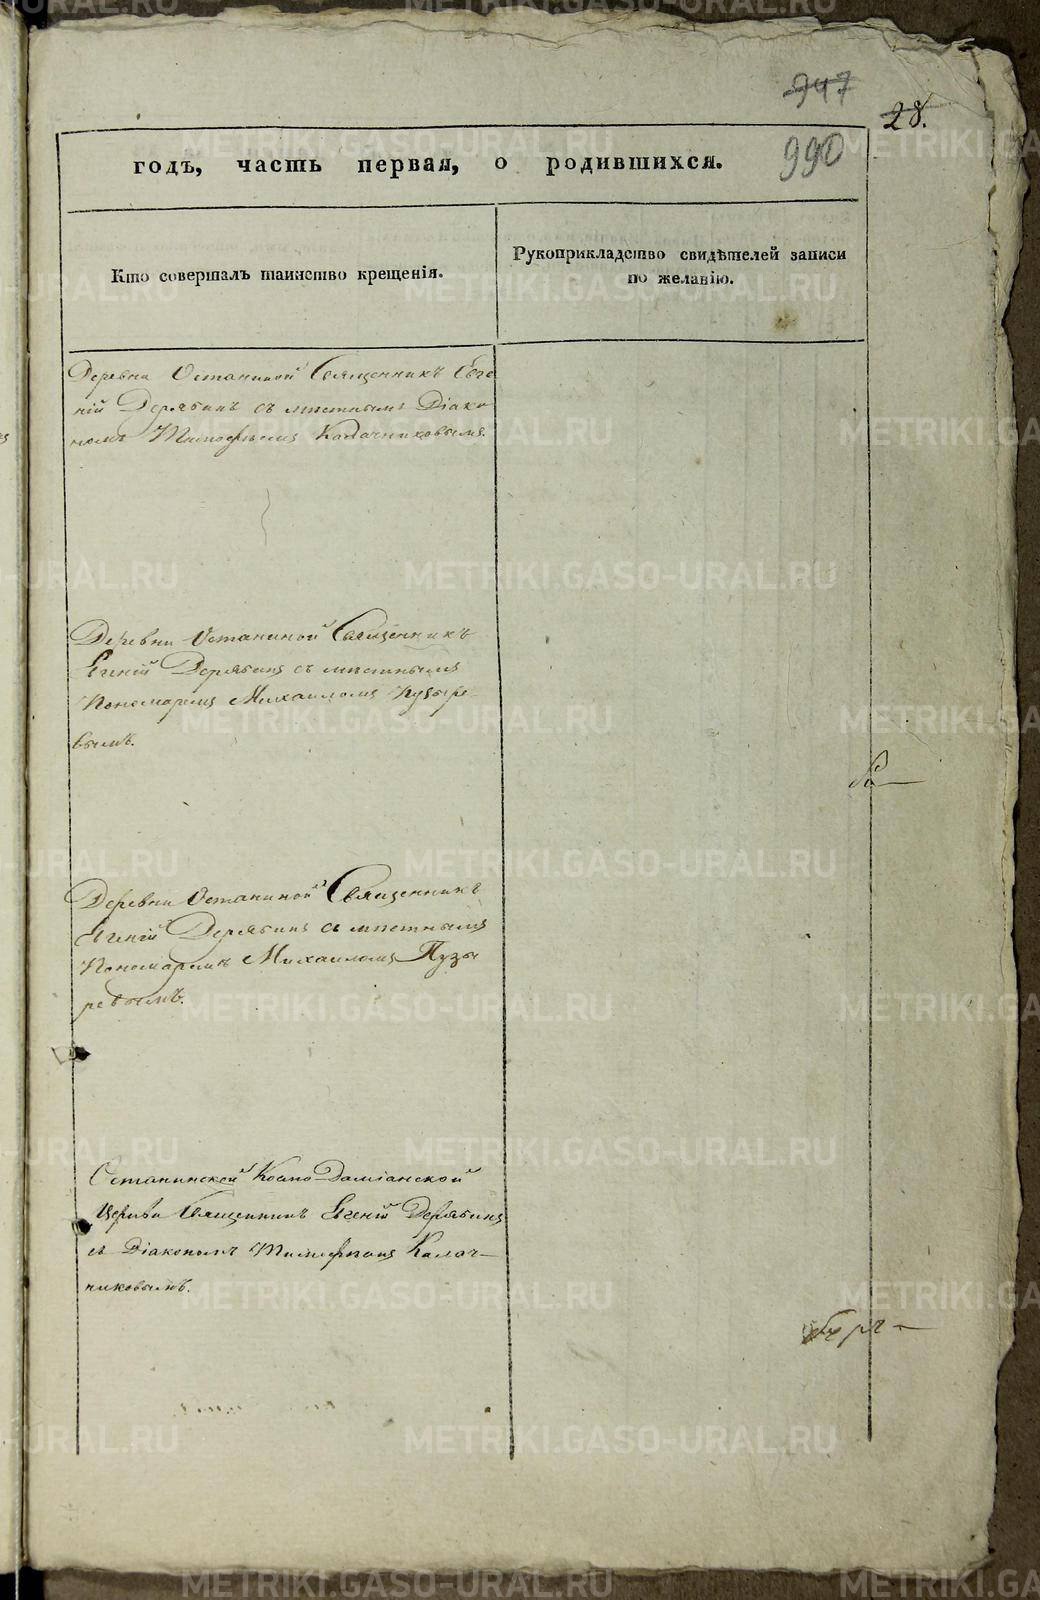 947
28.
990
годъ, часть первая, о родившихся.
Кто совершалъ таинство крещенія.
Рукоприкладство свидѣтелей записи
по желанію.
Деревни Останиной Священникъ Евге
ній Дерябинъ съ мѣстнымъ Діако
номъ Тимофѣемъ Калачниковымъ.
Деревни Останиной Священникъ
Евгеній Дерябинъ съ мѣстнымъ
Пономаремъ Михаиломъ Пузыре-
вымъ.
Деревни Останиной Священникъ
Евгеній Дерябинъ съ мѣстнымъ
Пономаремъ Михаиломъ Пузы
ревымъ.
Останинской Космо Даміанской
Церкви Священникъ Евгеній Дерябинъ
съ Діакономъ Тимофѣемъ Калач-
никовымъ.
METRIKI.GASO-URAL.RU